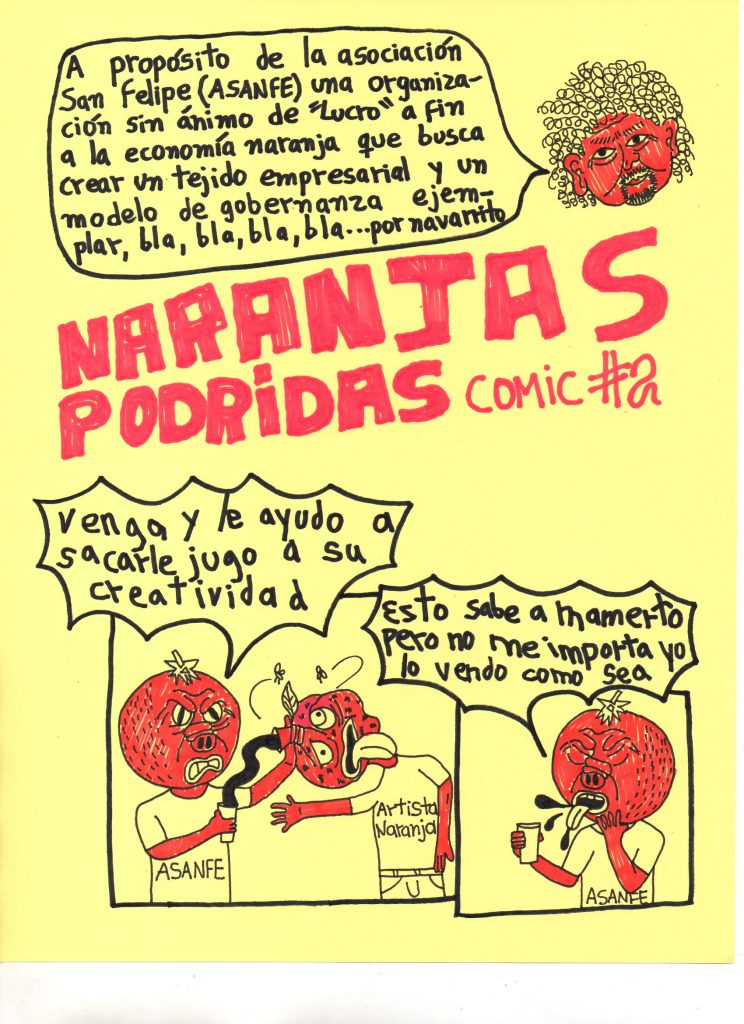 A propósito de la asociación
San Felipe (ASANFE) una organiza-
ción sin ánimo de "Lucro" a fin
a la economía naranja que busca
crear un tejido empresarial y un
modelo de gobernanza ejem-
plar, bla, bla, bla, bla...por navarrito
NARANJAS
PODRIDAS COMIC #2
venga y le ayudo a
sacarle jugo a su
creatividad
Esto sabe a mamerto
pero no me importa yo
lo vendo como sea
ASANFE
Artista
Naranja
ASANFE